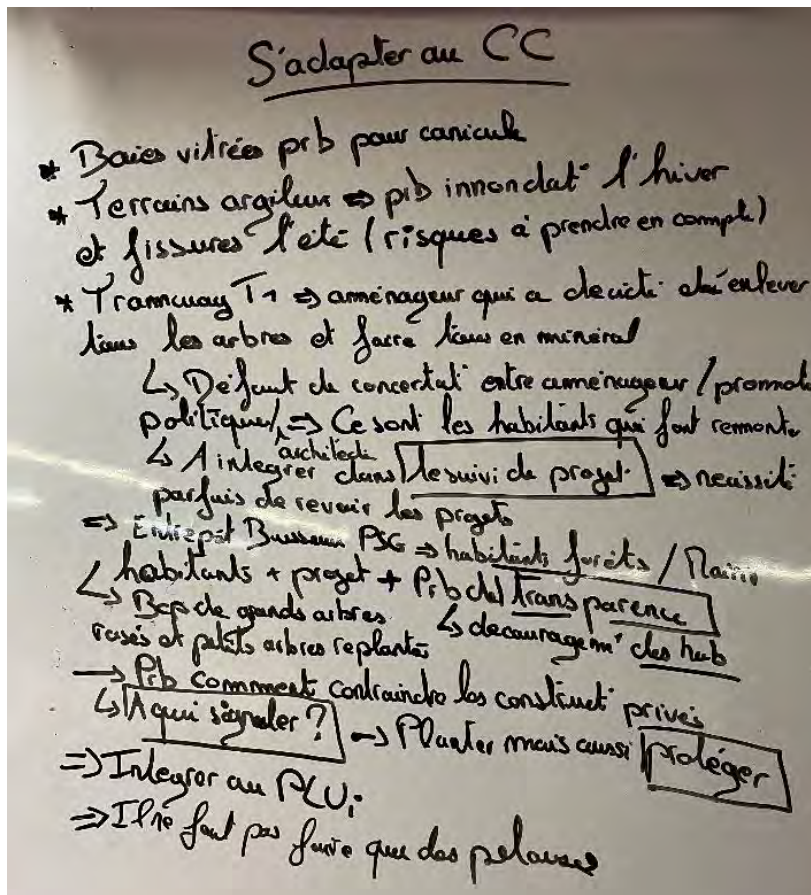 S'adapter au CC
* Baies vitrées prb pour canicule
* Terrains argileux => prb innondat° l'hiver
et fissures l'été (risques à prendre en compte)
* Tramway T1 => aménageur qui a décidé d'enlever
tous les arbres et faire tous en minéral
↳ Défaut de concertat° entre aménageur / promot
politique / => Ce sont les habitants qui font remonter
architecte
↳ A integrer dans le suivi de projet => necissité
parfois de revoir les projets
=> Entrepôt PSG => habitants forêts / Mairie
habitants + projet + Prb de transparence
↳ Bcp de grands arbres ↳ decouragem^t des hab
rasés et petits arbres replantés
→ Prb comment contraindre les construct° privés
↳ A qui signaler ? → Planter mais aussi protéger
=> Integrer au PLUi
=> Il ne faut pas faire que des